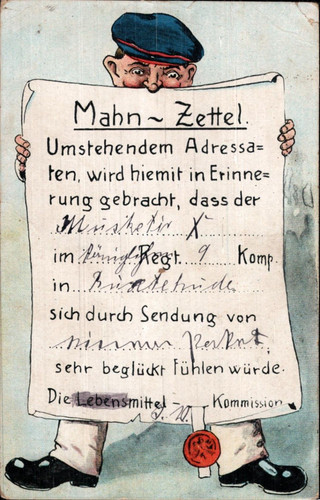 Mahn ~ Zettel.
Umstehendem Adressa=
ten, wird hiemit in Erinne=
rung gebracht, dass der
Musketir X
im Regt. 9 Komp.
in Buxtehude
sich durch Sendung von
sehr beglückt fühlen würde.
Die Lebensmittel - Kommission